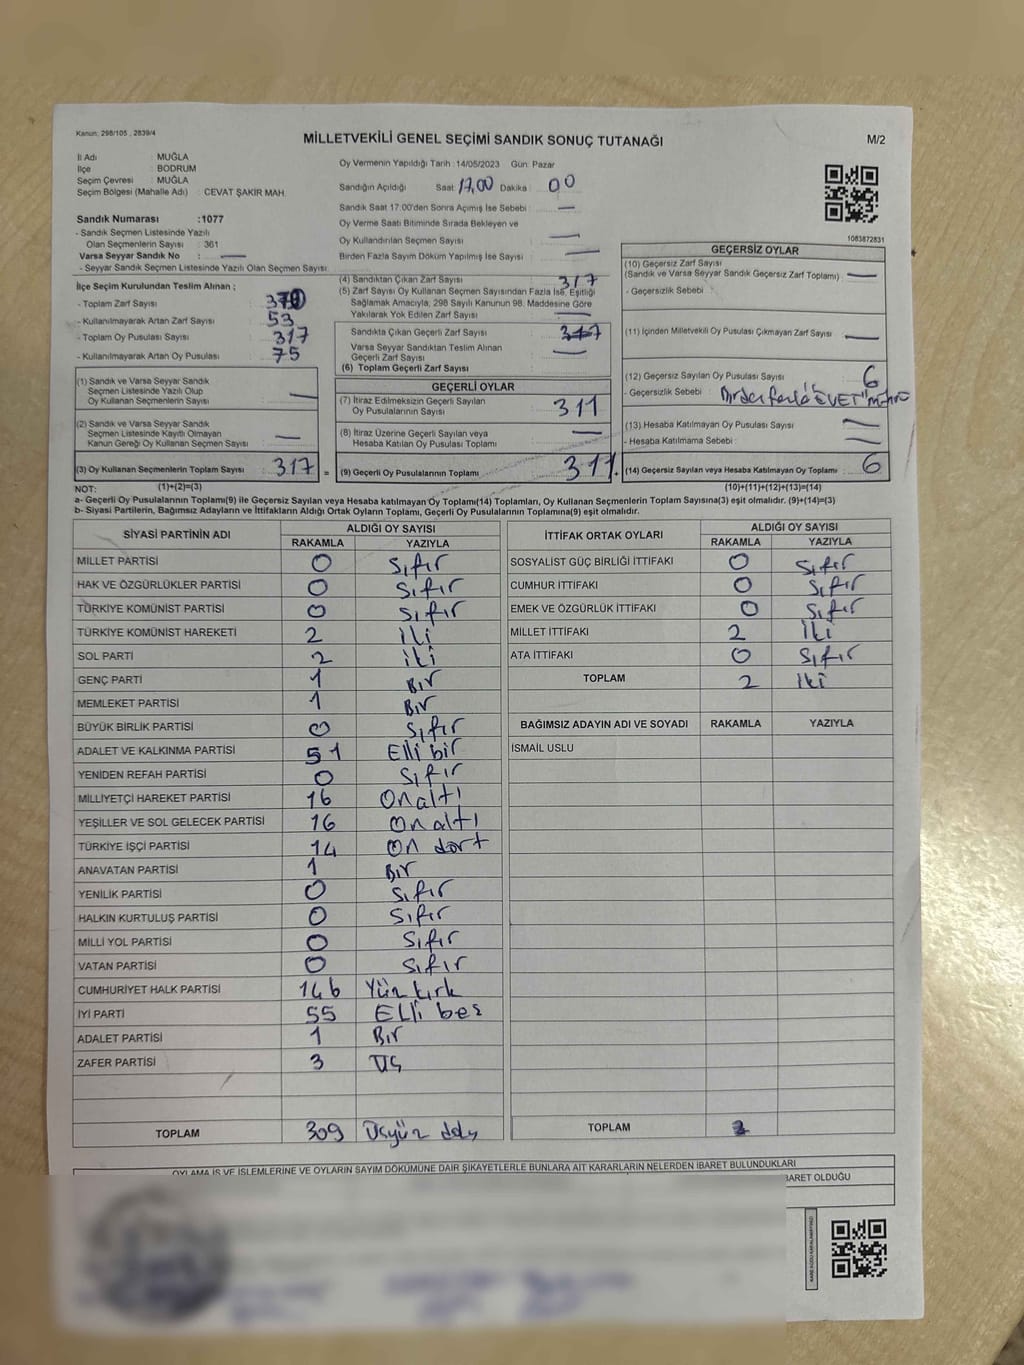 Kanun: 298/105 , 2839/4
MİLLETVEKİLİ GENEL SEÇİMİ SANDIK SONUÇ TUTANAĞI
M/2
İl Adı : MUĞLA
İlçe : BODRUM
Seçim Çevresi : MUĞLA
Seçim Bölgesi (Mahalle Adı) : CEVAT ŞAKİR MAH.
Sandık Numarası :1077
- Sandık Seçmen Listesinde Yazılı
Olan Seçmenlerin Sayısı : 361
Varsa Seyyar Sandık No : —
- Seyyar Sandık Seçmen Listesinde Yazılı Olan Seçmen Sayısı:
Oy Vermenin Yapıldığı Tarih :14/05/2023 Gün: Pazar
Sandığın Açıldığı Saat: 17,00 Dakika : 00
Sandık Saat 17:00'den Sonra Açılmış İse Sebebi : —
Oy Verme Saati Bitiminde Sırada Bekleyen ve
Oy Kullandırılan Seçmen Sayısı —
Birden Fazla Sayım Döküm Yapılmış İse Sayısı —
1083872831
İlçe Seçim Kurulundan Teslim Alınan ;
- Toplam Zarf Sayısı : 370
- Kullanılmayarak Artan Zarf Sayısı : 53
- Toplam Oy Pusulası Sayısı : 317
- Kullanılmayarak Artan Oy Pusulası : 75
(1) Sandık ve Varsa Seyyar Sandık
Seçmen Listesinde Yazılı Olup
Oy Kullanan Seçmenlerin Sayısı : —
(2) Sandık ve Varsa Seyyar Sandık
Seçmen Listesinde Kayıtlı Olmayan
Kanun Gereği Oy Kullanan Seçmen Sayısı : —
(3) Oy Kullanan Seçmenlerin Toplam Sayısı : 317 =
(4) Sandıktan Çıkan Zarf Sayısı : 317
(5) Zarf Sayısı Oy Kullanan Seçmen Sayısından Fazla İse, Eşitliği
Sağlamak Amacıyla; 298 Sayılı Kanunun 98. Maddesine Göre
Yakılarak Yok Edilen Zarf Sayısı : —
Sandıkta Çıkan Geçerli Zarf Sayısı : 317
Varsa Seyyar Sandıktan Teslim Alınan
Geçerli Zarf Sayısı : —
(6) Toplam Geçerli Zarf Sayısı
GEÇERLİ OYLAR
(7) İtiraz Edilmeksizin Geçerli Sayılan
Oy Pusulalarının Sayısı : 311
(8) İtiraz Üzerine Geçerli Sayılan veya
Hesaba Katılan Oy Pusulası Toplamı : —
(9) Geçerli Oy Pusulalarının Toplamı : 311 +
GEÇERSİZ OYLAR
(10) Geçersiz Zarf Sayısı
(Sandık ve Varsa Seyyar Sandık Geçersiz Zarf Toplamı) : —
- Geçersizlik Sebebi :
(11) İçinden Milletvekili Oy Pusulası Çıkmayan Zarf Sayısı : —
(12) Geçersiz Sayılan Oy Pusulası Sayısı : 6
- Geçersizlik Sebebi : Birden fazla "EVET" mührü
(13) Hesaba Katılmayan Oy Pusulası Sayısı : —
- Hesaba Katılmama Sebebi : —
(14) Geçersiz Sayılan veya Hesaba Katılmayan Oy Toplamı : 6
NOT: (1)+(2)=(3) (10)+(11)+(12)+(13)=(14)
a- Geçerli Oy Pusulalarının Toplamı(9) ile Geçersiz Sayılan veya Hesaba katılmayan Oy Toplamı(14) Toplamları, Oy Kullanan Seçmenlerin Toplam Sayısına(3) eşit olmalıdır. (9)+(14)=(3)
b- Siyasi Partilerin, Bağımsız Adayların ve İttifakların Aldığı Ortak Oyların Toplamı, Geçerli Oy Pusulalarının Toplamına(9) eşit olmalıdır.
SİYASİ PARTİNİN ADI ALDIĞI OY SAYISI
RAKAMLA YAZIYLA
MİLLET PARTİSİ 0 Sıfır
HAK VE ÖZGÜRLÜKLER PARTİSİ 0 Sıfır
TÜRKİYE KOMÜNİST PARTİSİ 0 Sıfır
TÜRKİYE KOMÜNİST HAREKETİ 2 iki
SOL PARTİ 2 iki
GENÇ PARTİ 1 Bir
MEMLEKET PARTİSİ 1 Bir
BÜYÜK BİRLİK PARTİSİ 0 Sıfır
ADALET VE KALKINMA PARTİSİ 51 Elli bir
YENİDEN REFAH PARTİSİ 0 Sıfır
MİLLİYETÇİ HAREKET PARTİSİ 16 On altı
YEŞİLLER VE SOL GELECEK PARTİSİ 16 On altı
TÜRKİYE İŞÇİ PARTİSİ 14 On dört
ANAVATAN PARTİSİ 1 Bir
YENİLİK PARTİSİ 0 Sıfır
HALKIN KURTULUŞ PARTİSİ 0 Sıfır
MİLLİ YOL PARTİSİ 0 Sıfır
VATAN PARTİSİ 0 Sıfır
CUMHURİYET HALK PARTİSİ 146 Yüz kırk
İYİ PARTİ 55 Elli beş
ADALET PARTİSİ 1 Bir
ZAFER PARTİSİ 3 Üç
TOPLAM 309 Üçyüz
İTTİFAK ORTAK OYLARI ALDIĞI OY SAYISI
RAKAMLA YAZIYLA
SOSYALİST GÜÇ BİRLİĞİ İTTİFAKI 0 Sıfır
CUMHUR İTTİFAKI 0 Sıfır
EMEK VE ÖZGÜRLÜK İTTİFAKI 0 Sıfır
MİLLET İTTİFAKI 2 iki
ATA İTTİFAKI 0 Sıfır
TOPLAM 2 iki
BAĞIMSIZ ADAYIN ADI VE SOYADI RAKAMLA YAZIYLA
İSMAİL USLU
TOPLAM
OYLAMA İŞ VE İŞLEMLERİNE VE OYLARIN SAYIM DÖKÜMÜNE DAİR ŞİKAYETLERLE BUNLARA AİT KARARLARIN NELERDEN İBARET BULUNDUKLARI
BARET OLDUĞU